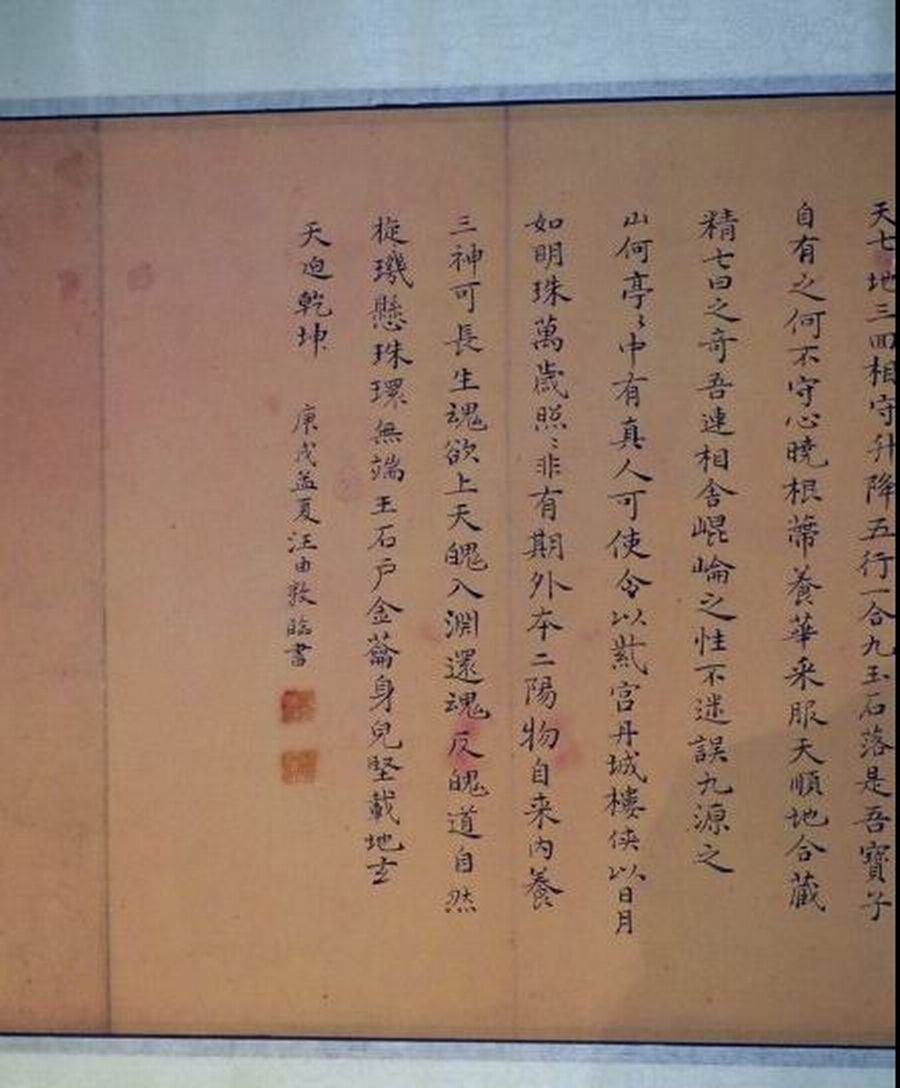 天七地三回相守升降五行一合九玉石落是吾寶子
自有之何不守心曉根蔕養華采服天順地合藏
精七日之奇吾連相舍崐崘之性不迷誤九源之
山何亭〻中有真人可使令以紫宫丹城樓俠以日月
如明珠萬歲照〻非有期外本二陽物自来内養
三神可長生魂欲上天魄入淵還魂反魄道自然
琁璣懸珠環無端玉石戶金蘥身皃堅載地玄
天迫乾坤 庚戌孟夏汪由敦臨書